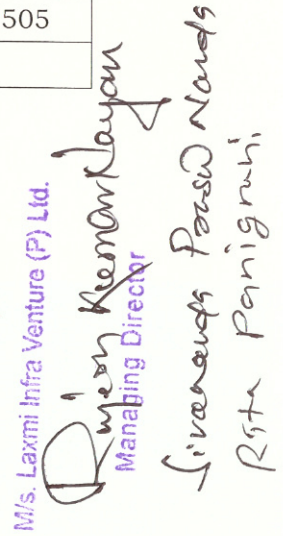 505
M/s. Laxmi Infra Venture (P) Ltd.
Rajesh Kumar Nayak
Managing Director
Sivananda Prasad Nanda
Rita Panigrahi